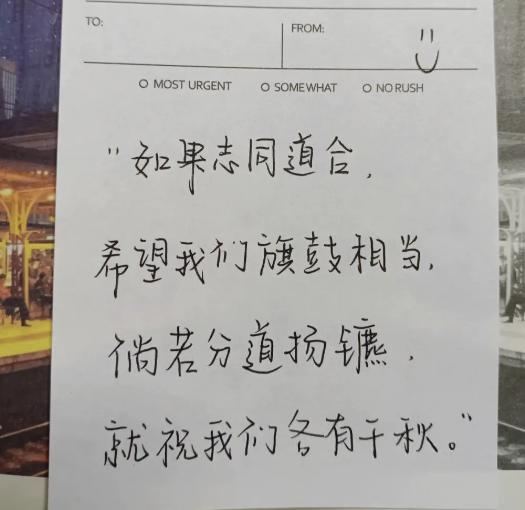 TO:
FROM:
MOST URGENT SOMEWHAT NO RUSH
"如果志同道合，
希望我们旗鼓相当，
倘若分道扬镳，
就祝我们各有千秋。"